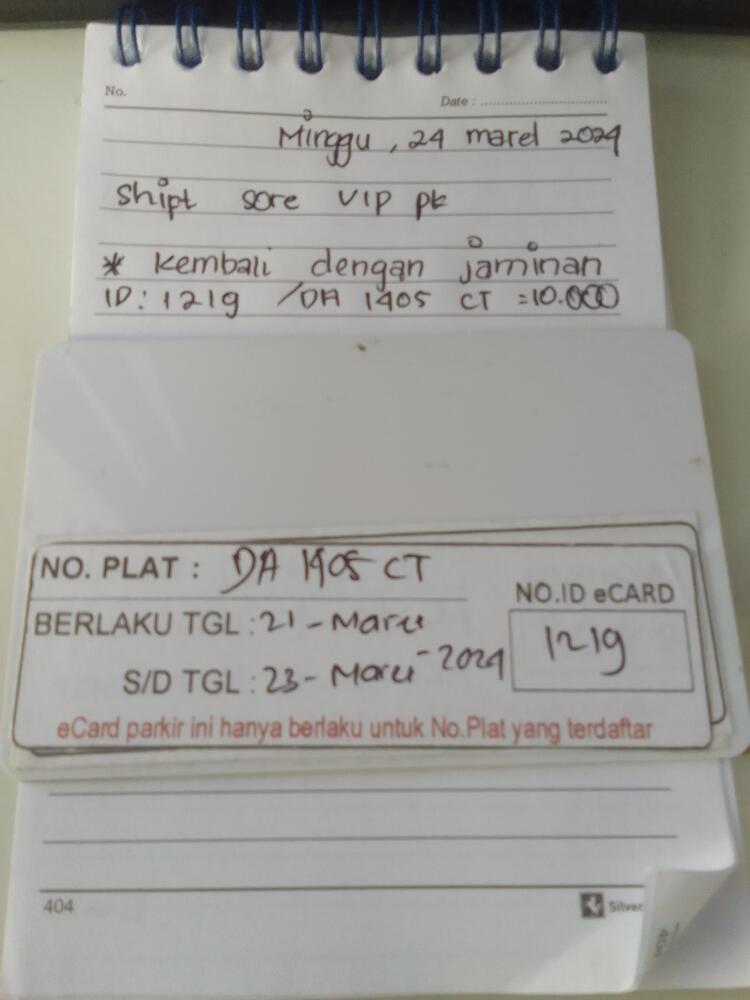 No.
Date : ................................
Minggu, 24 maret 2024
Shipt sore VIP pk
* Kembali dengan jaminan
ID: 1219 / DA 1405 CT = 10.000
NO. PLAT : DA 1405 CT
NO.ID eCARD
BERLAKU TGL : 21 - Maret
1219
S/D TGL : 23 - Maret - 2024
eCard parkir ini hanya berlaku untuk No.Plat yang terdaftar
404
Silver